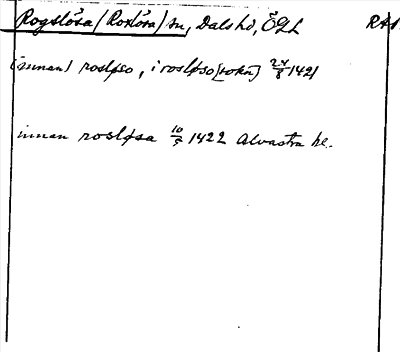 Rogslösa (Roxlösa) sn, Dals hd, ÖGL RAp.
(innan) rosløso, i rosløso [sokn] 24/8 1421
innan rosløsa 10/5 1422 Alvastra kl.